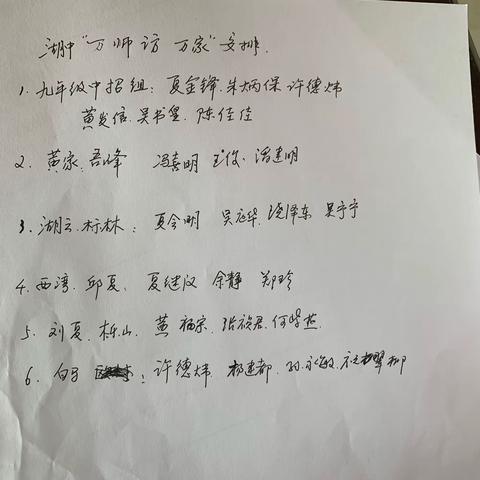 湖中“万师访万家”安排.
1. 九年级中招组：夏金锋.朱炳保 许德炜
黄发信.吴书黑.陈佳佳
2. 黄家.吾峰 冯喜明 王俊.潘建明
3. 湖云.标林：夏令明 吴冠华.饶泽东 吴宁宁
4. 西湾.邱夏. 夏继汉 余静 郑玲
5. 刘夏.栎山. 黄福宗.张祯君.何
6. 白马：许德炜.杨建都.孙永敏.柳